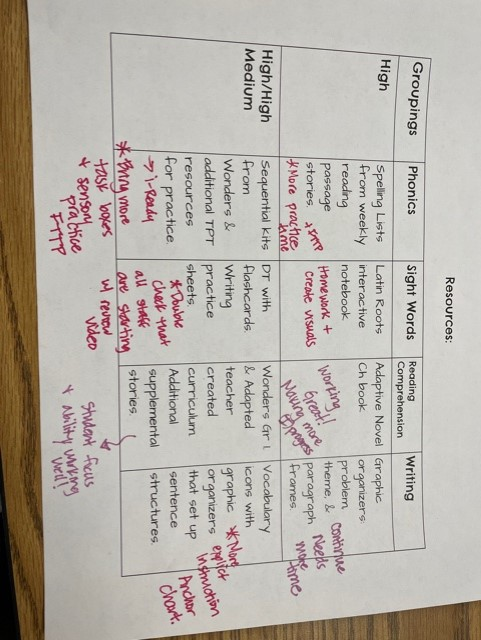 Resources:
Groupings
Phonics
Sight Words
Reading
Comprehension
Writing
High
Spelling Lists
from weekly
reading
passage
stories.
*More practice
time
Latin Roots
interactive
notebook
Homework +
create visuals
Adaptive Novel
Ch book
Working
Great!
Making more
progress
Graphic
organizers:
problem
theme, &
paragraph
frames.
Continue
Needs
more
time
High/High
Medium
Sequential kits
from
Wonders &
additional TPT
resources
for practice.
→ I-Ready
*Bring more
task boxes
+ sensory
practice
DT with
flashcards.
Writing
practice
sheets.
*Double
check that
all staff
are starting
w/ review
video
Wonders Gr 1
& Adapted
teacher
created
curriculum
Additional
supplemental
stories.
Student focus
+ ability working
well!
Vocabulary
icons with
graphic
organizers
that set up
sentence
structures.
*More
explicit
instruction
Anchor
Chart.